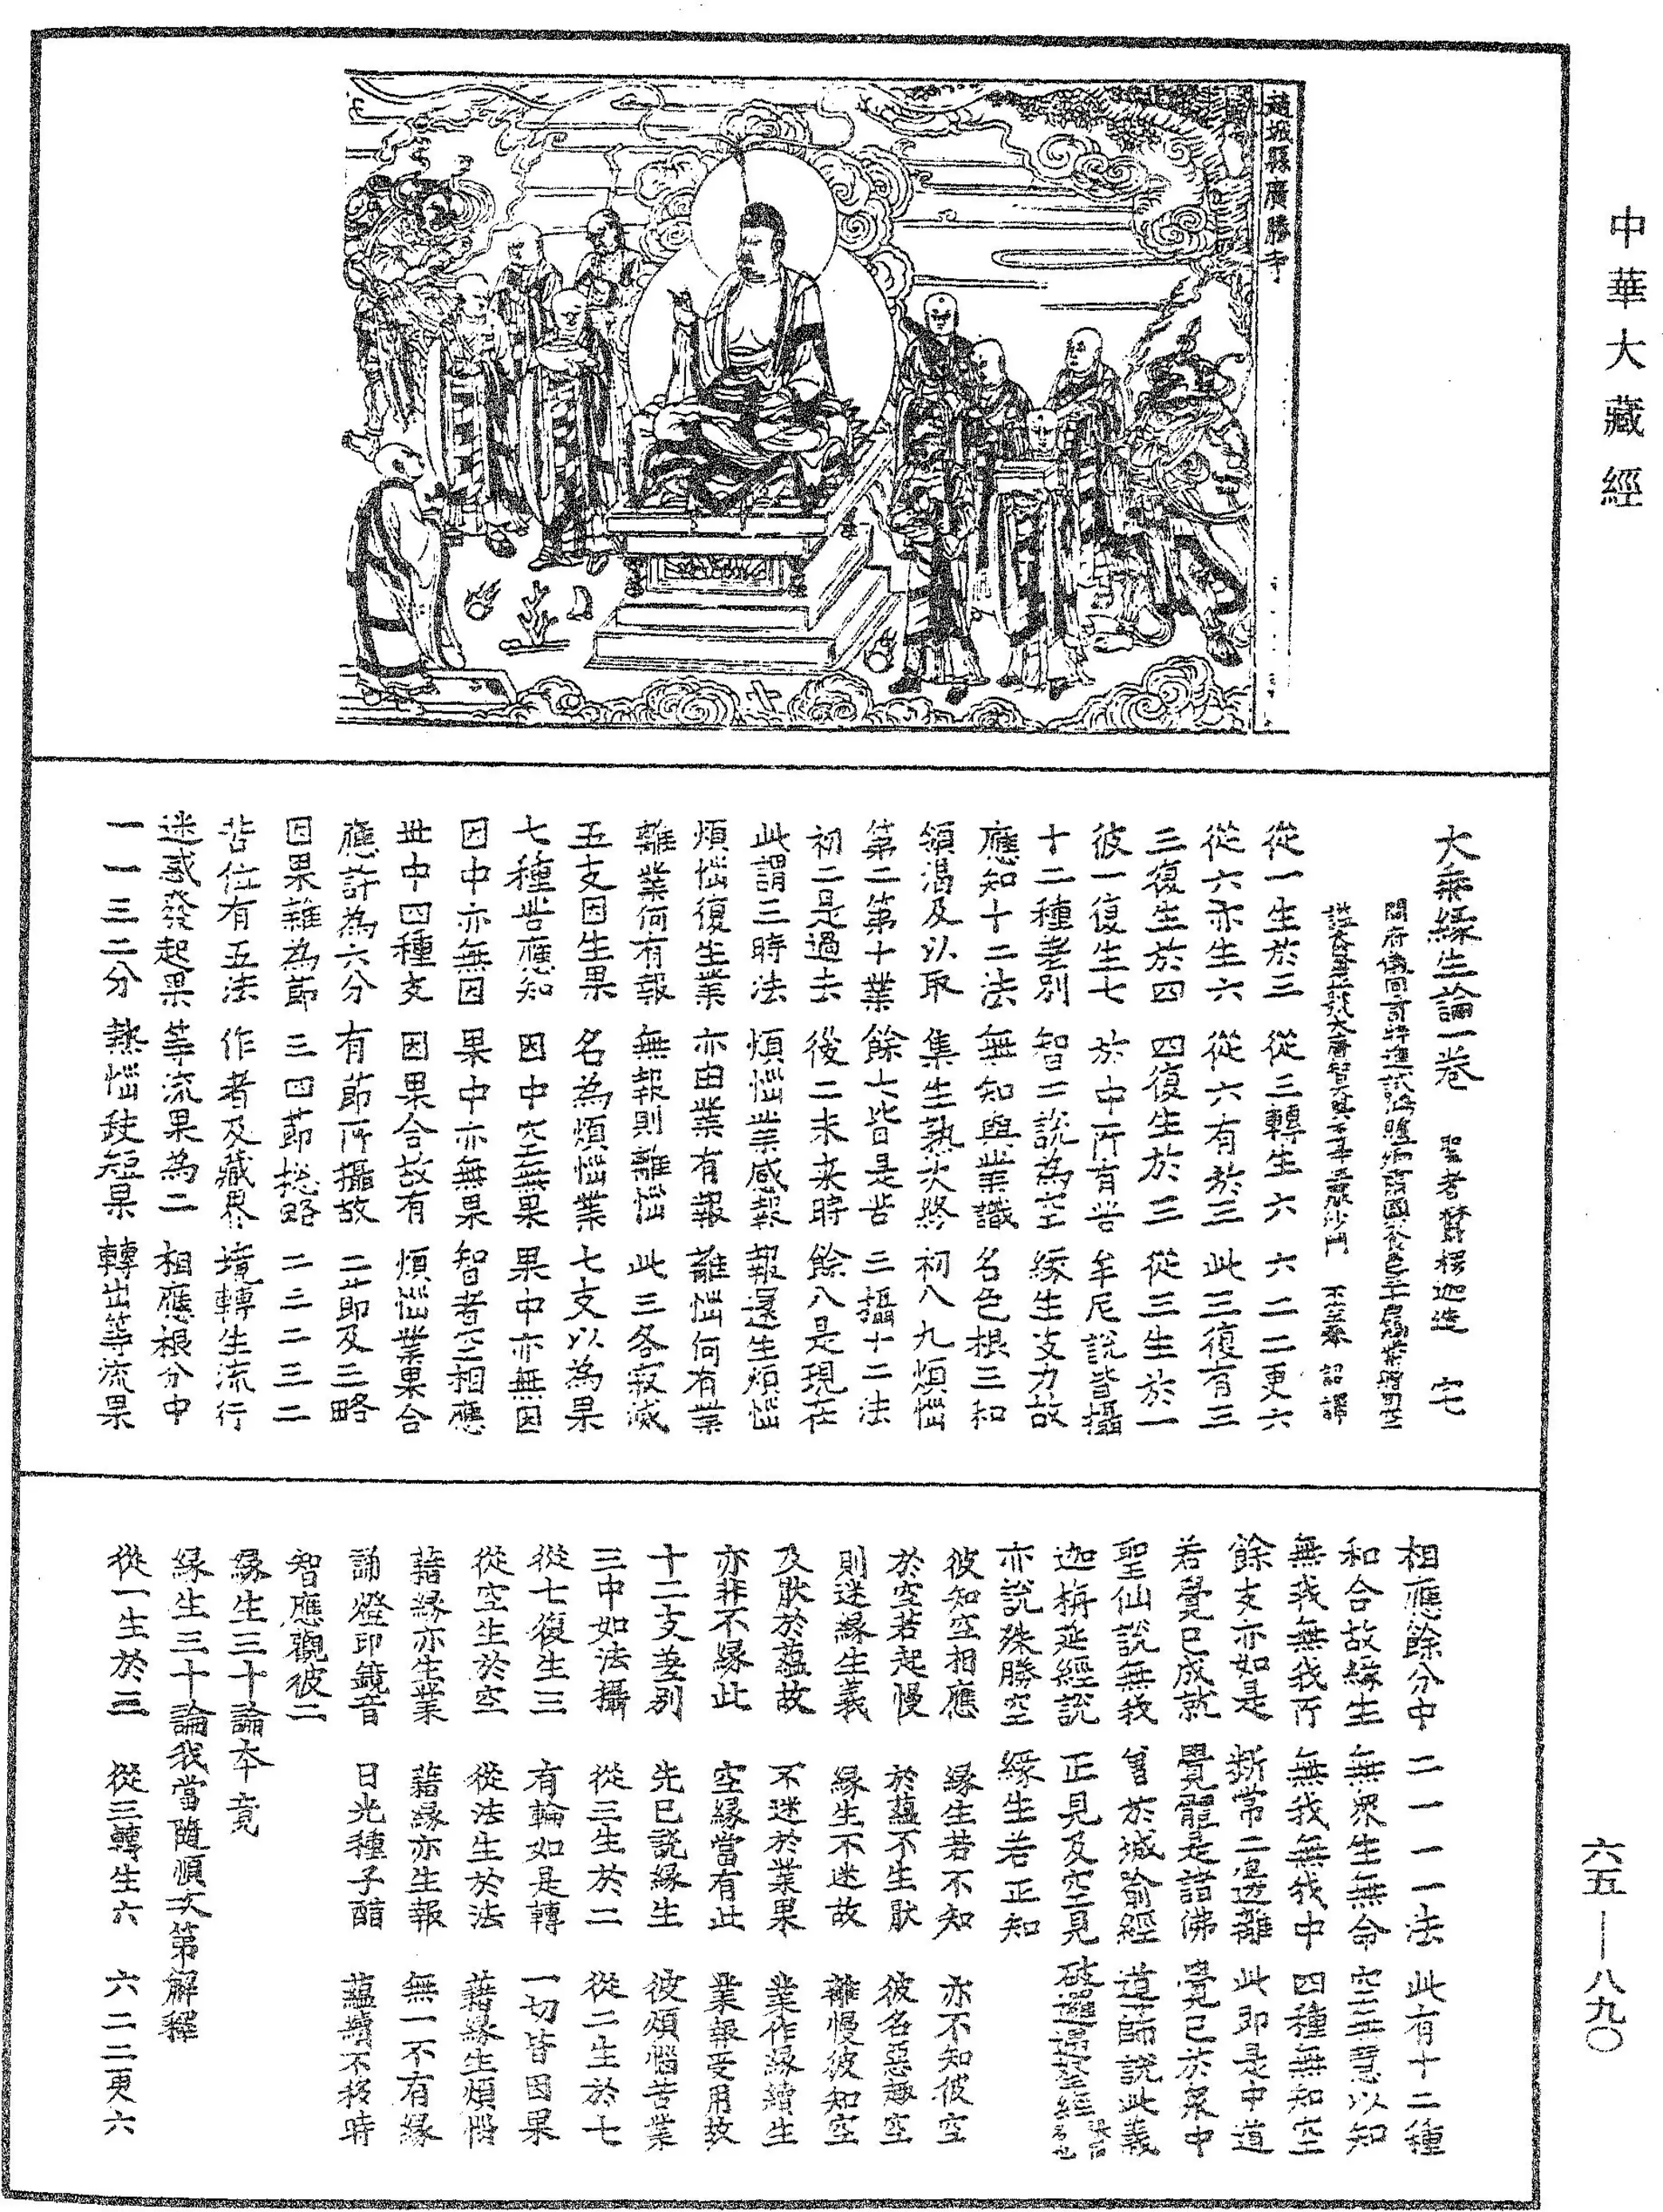 中華大藏經
趙城縣廣勝寺
大乘緣生論一卷 聖者欝楞迦造 宅
開府儀同三司特進試鴻臚卿肅國公食邑三千戶賜紫贈司空
謚大鑒正號大廣智大興善寺三藏沙門 不空奉 詔譯
從一生於三 從三轉生六 六二二更六
從六亦生六 從六有於三 此三復有三
三復生於四 四復生於三 從三生於一
彼一復生七 於中所有苦 牟尼說皆攝
十二種差別 智士說為空 緣生支力故
應知十二法 無知與業識 名色根三和
領渴及以取 集生熟火終 初八九煩惱
第二第十業 餘七皆是苦 三攝十二法
初二是過去 後二未来時 餘八是現在
此謂三時法 煩惱業感報 報還生煩惱
煩惱復生業 亦由業有報 離惱何有業
離業何有報 無報則離惱 此三各寂滅
五支因生果 名為煩惱業 七支以為果
七種苦應知 因中空無果 果中亦無因
因中亦無因 果中亦無果 智者空相應
世中四種支 因果合故有 煩惱業果合
應許為六分 有節所攝故 二節及三略
因果雜為節 三四節揔略 二三二三二
苦位有五法 作者及藏界 境轉生流行
迷惑發起果 等流果為二 相應根分中
一一三二分 熱惱缺短果 轉出等流果
相應餘分中 二一一一法 此有十二種
和合故緣生 無眾生無命 空無慧以知
無我無我所 無我無我中 四種無知空
餘支亦如是 斷常二邊離 此即是中道
若覺已成就 覺體是諸佛 覺已於衆中
聖仙說無我 曾於城喻經 導師說此義
迦栴延經說 正見及空見 破邏遏娑經
亦說殊勝空 緣生若正知
彼知空相應 緣生若不知 亦不知彼空
於空若起慢 於蘊不生猒 彼名惡趣空
則迷緣生義 緣生不迷故 離慢彼知空
及猒於蘊故 不迷於業果 業作緣續生
亦非不緣此 空緣當有此 業報受用故
十二支差別 先已說緣生 彼煩惱苦業
三中如法攝 從三生於二 從二生於七
從七復生三 有輪如是轉 一切皆因果
從空生於空 從法生於法 藉緣生煩惱
藉緣亦生業 藉緣亦生報 無一不有緣
誦燈印鏡音 日光種子醋 蘊續不移時
智應觀彼二
緣生三十論本竟
緣生三十論我當隨順次第解釋
從一生於三 從三轉生六 六二二更六
六五—八九〇